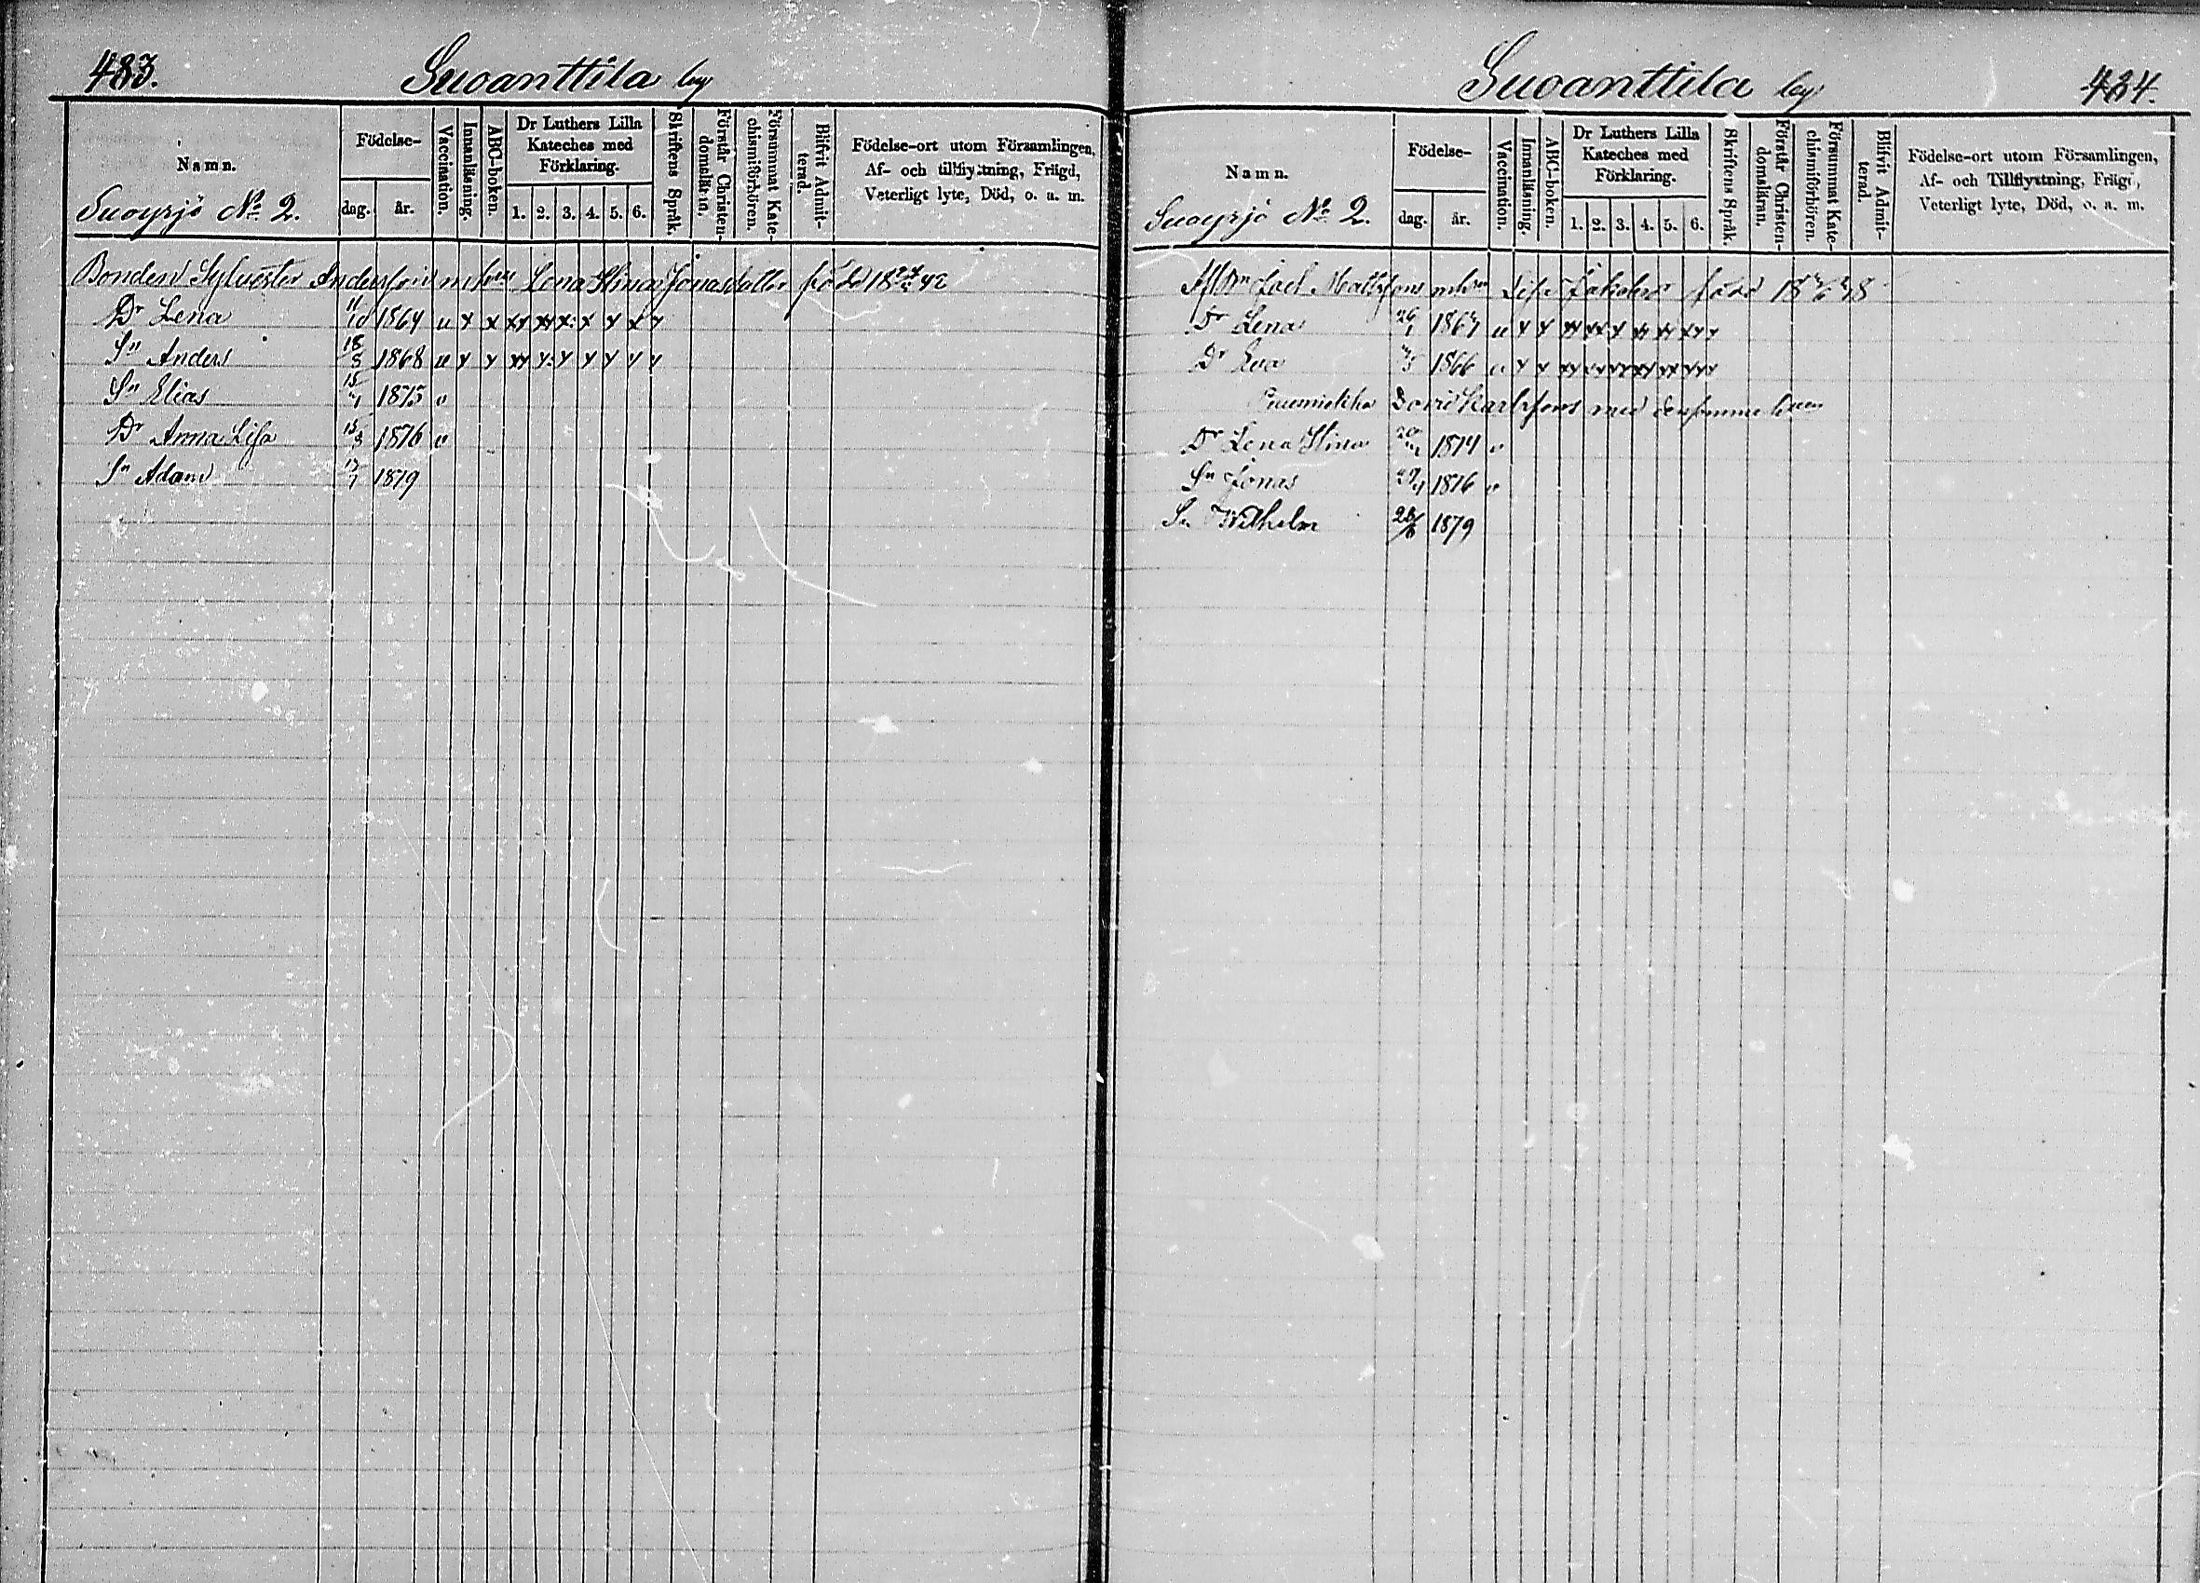 483.
Suoanttila by
Namn.
Suoyrjö No 2.
Födelse-
dag. år.
Vaccination.
Innanläsning.
ABC-boken.
Dr Luthers Lilla
Kateches med
Förklaring.
1. 2. 3. 4. 5. 6.
Skriftens Språk.
Förstår Christen-
domsläran.
Försummat Kate-
chismiförhören.
Blifvit Admit-
terad.
Födelse-ort utom Församlingen,
Af- och tillflyttning, Frägd,
Veterligt lyte, Död, o. a. m.
Bonden Sylvester Andersson m hru Lena Stina Jonasdotter född 18 42
Dr Lena 11/10 1864 u x x xx xx x x x x x
Sn Anders 18/3 1868 u x x xx x x x x x x
Sn Elias 15 1875 v
Dr Anna Lisa 15/3 1876 v
Sn Adam 1879
Suoanttila by
434.
Namn.
Suoyrjö No 2.
Födelse-
dag. år.
Vaccination.
Innanläsning.
ABC-boken.
Dr Luthers Lilla
Kateches med
Förklaring.
1. 2. 3. 4. 5. 6.
Skriftens Språk.
Förstår Christen-
domsläran.
Försummat Kate-
chismiförhören.
Blifvit Admit-
terad.
Födelse-ort utom Församlingen,
Af- och Tillflyttning, Frägd,
Veterligt lyte, Död, o. a. m.
Joel Mattssons född 18 48
Dr Lena 26/1 186 u x x xx xx x xx xx xxx
Dr Eva 1866 u x x xx xx xx xx xx xxx
David Karlssons med densamma
Dr Lena Stina 20 1874 v
Sn Jonas 1876 v
Sn Wilhelm 28 1879